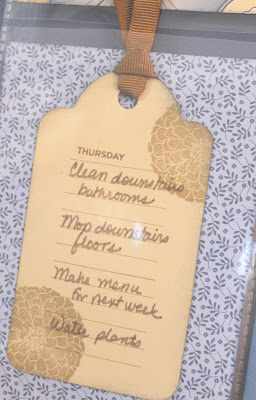 THURSDAY
Clean downstairs
bathrooms
Mop downstairs
floors
Make menu
for next week
Water plants